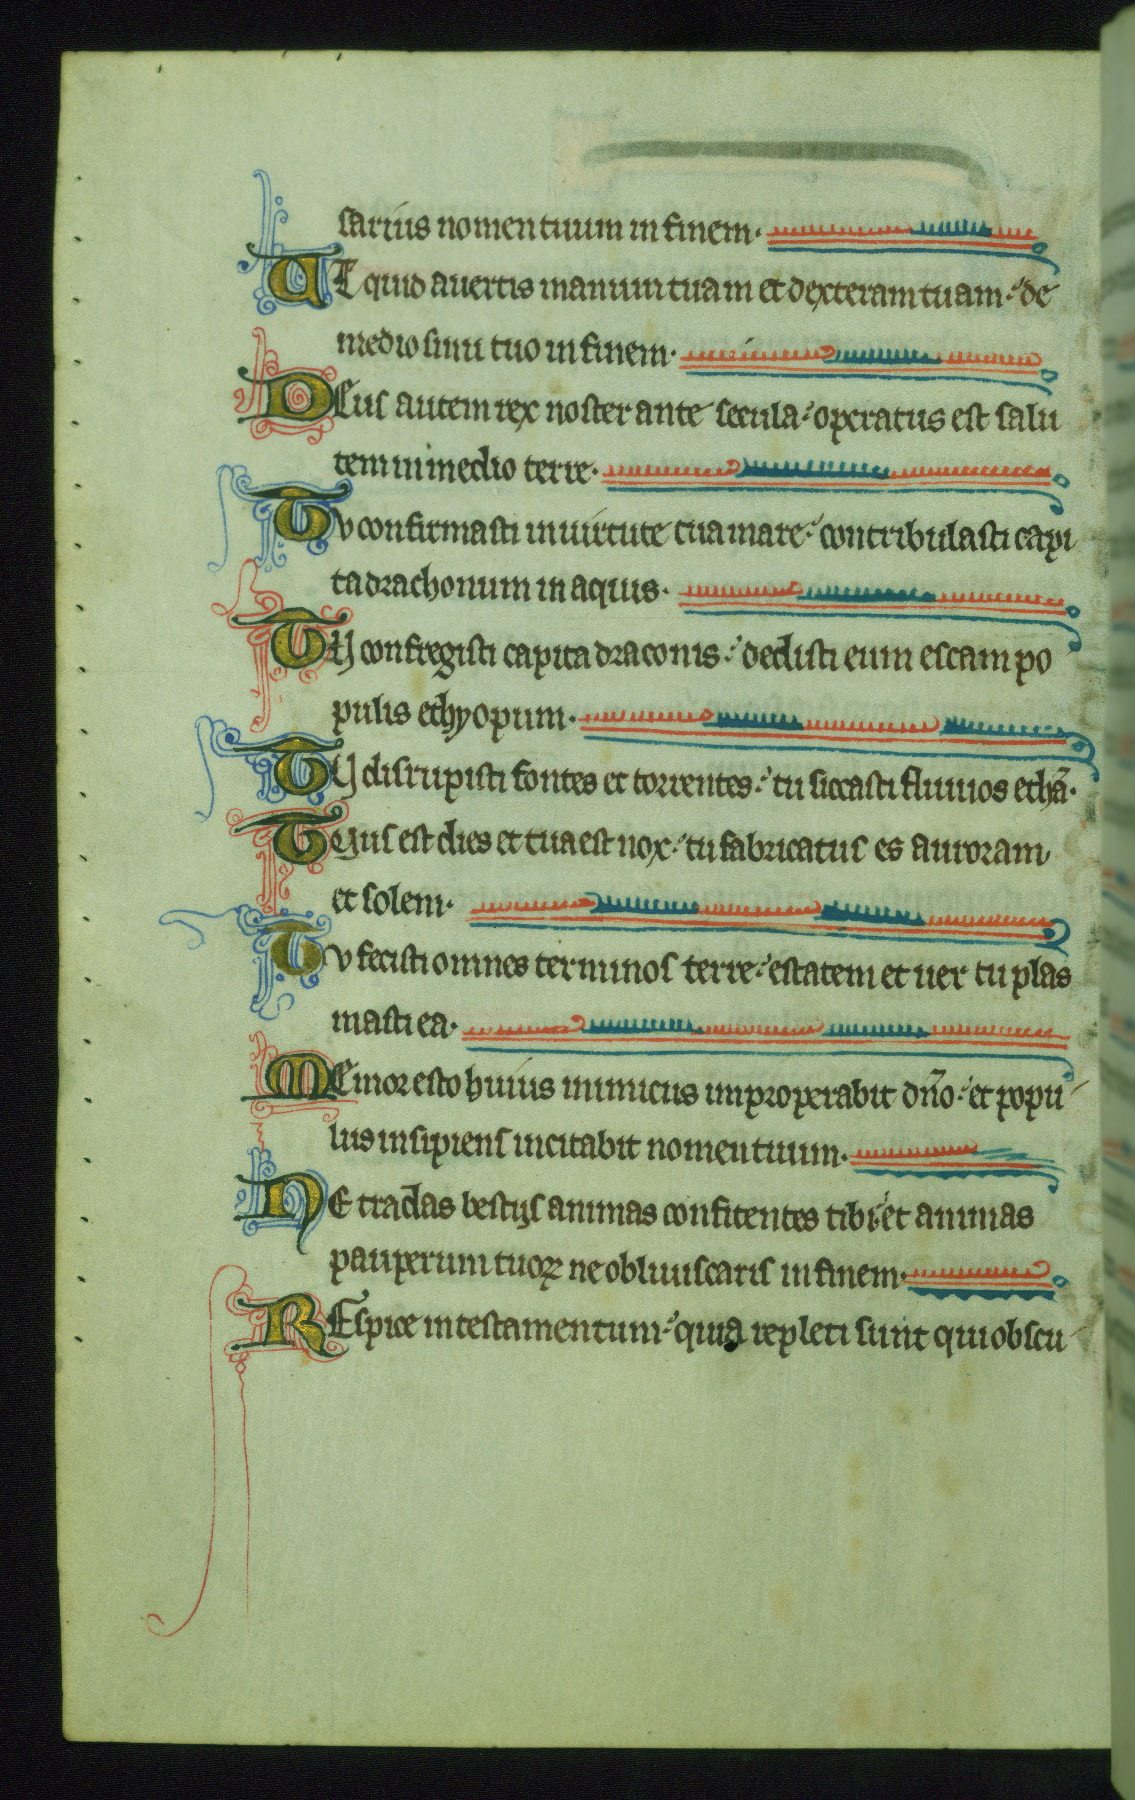 sarius nomen tuum in finem.
UT quid avertis manum tuam et dexteram tuam: de
medio sinu tuo in finem.
DEus autem rex noster ante secula: operatus est salu
tem in medio terre.
Tv confirmasti in uirtute tua mare: contribulasti capi
ta drachonum in aquis.
TU confregisti capita draconis: dedisti eum escam po
pulis ethyopum.
TU disrupisti fontes et torrentes: tu siccasti fluuios ethã.
TUus est dies et tua est nox: tu fabricatus es auroram
et solem.
Tv fecisti omnes terminos terre: estatem et uer tu plas
masti ea.
MEmor esto huius inimicus improperabit dño: et popu
lus insipiens incitabit nomen tuum.
NE tradas bestijs animas confitentes tibi: et animas
pauperum tuoꝝ ne obliuiscaris in finem.
REspice in testamentum: quia repleti sunt qui obscu